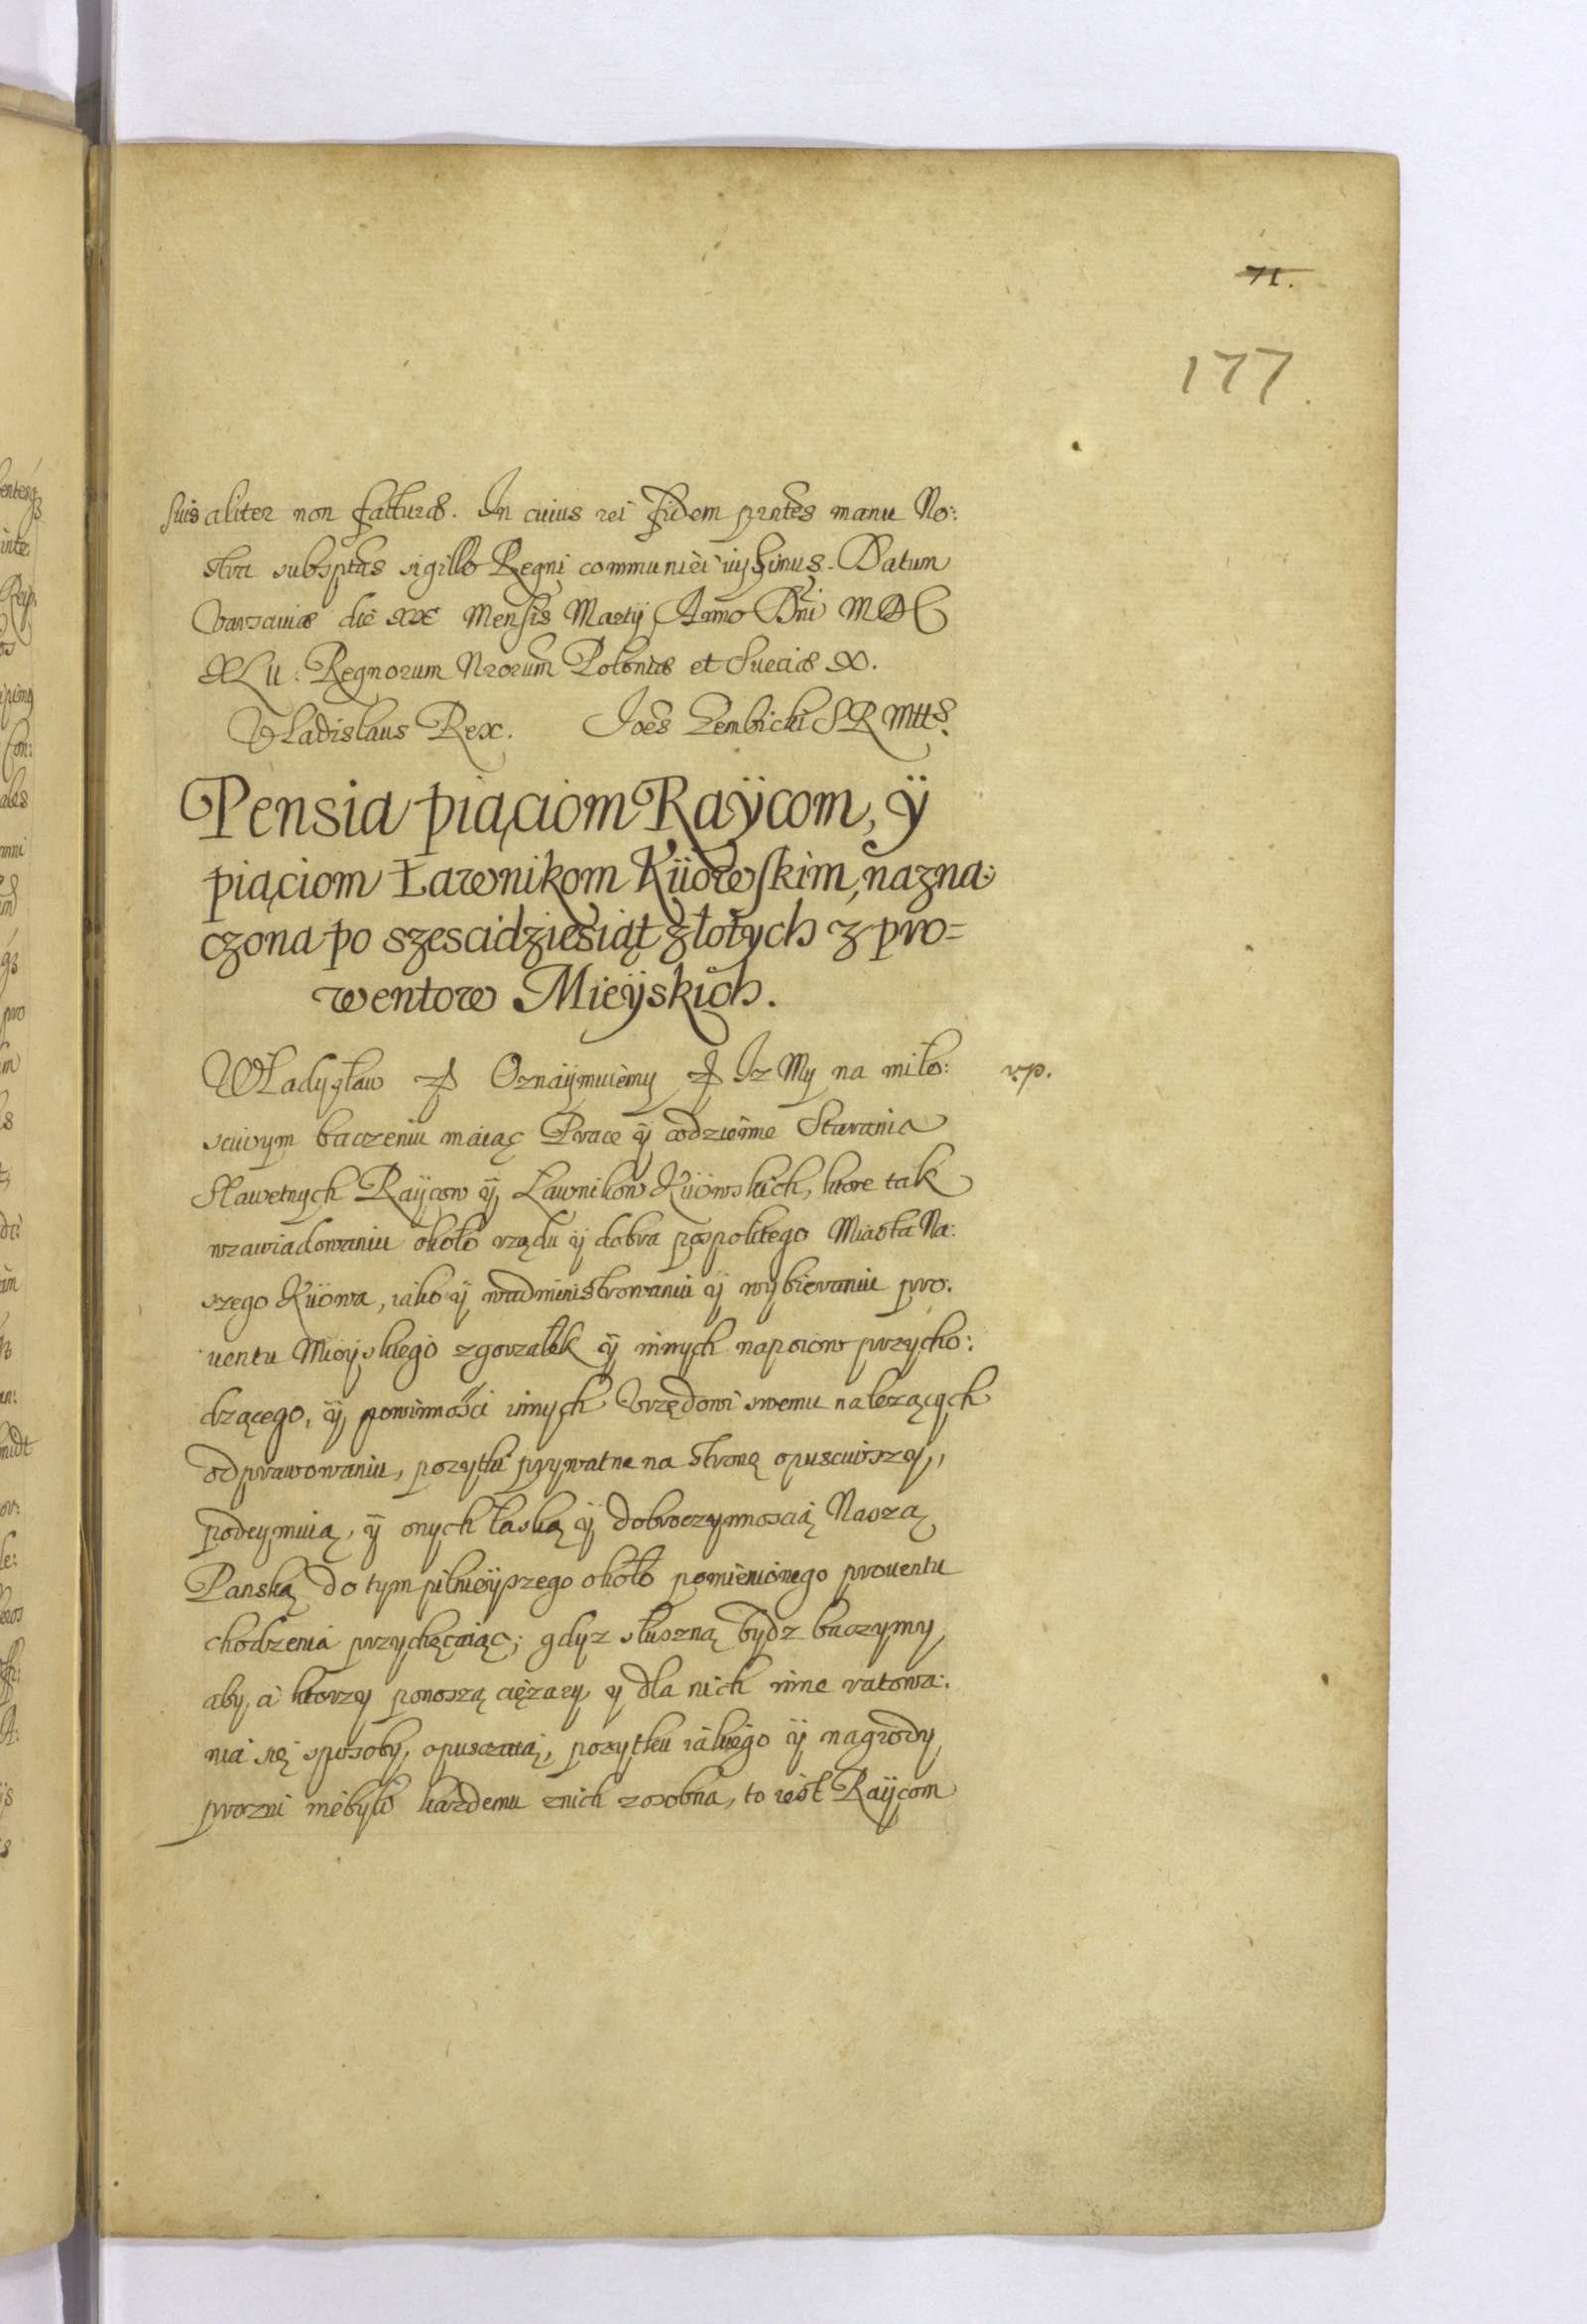 71.
177.
suis aliter non facturas. In cuius rei fidem prntes manu No:
stra subsptas sigillo Regni communiri iussimus. Datum
Varsaviæ die XX Mensis Martij Anno Dni MDC
XLII: Regnorum Nrorum Poloniæ et Sueciæ X.
Vladislaus Rex. Joes Zembicki SRMtts.
Pensia piąciom Raÿcom, ÿ
piąciom Ławnikom Kÿowskim, nazna:
czona po szescidziesiąt złotych z pro=
wentow Mieÿskich.
Władysław Oznaÿmuiemy Iz My na miło: vp.
sciwym baczeniu maiąc Prace ÿ codzienne Starania
Sławetnych Raÿcow ÿ Ławnikow Kÿowskich, ktore tak
wzawiadowaniu około rządu ÿ dobra pospolitego Miasta Na:
szego Kÿowa, iako ÿ wadministrowaniu ÿ wybieraniu pro:
uentu Mieÿskiego zgorzałek ÿ innych napoiow przycho:
dzącego, ÿ powinnosci innych Vrzędowi swemu nalezących
odprawowaniu, pozytki prywatne na stronę opusciwszy,
podeymuią, ÿ onych łaską ÿ dobroczynnoscią Naszą
Panską do tym pilnieÿszego około pomienionego prouentu
chodzenia przychęcaiąc; gdyz słuszną bydz baczymy,
aby ci ktorzy ponoszą ciężary, y dla nich inne ratowa:
nia się sposoby, opuszczaią, pozytku iakiego ÿ nagrody
prozni niebyli kazdemu znich zosobna, to iest Raÿcom